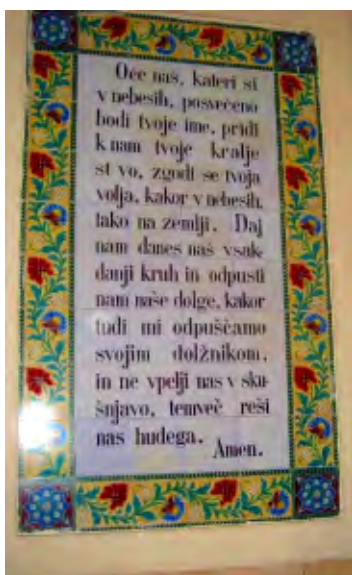 Oče naš, kateri si
v nebesih, posvečeno
bodi tvoje ime, pridi
k nam tvoje kralje
st vo, zgodi se tvoja
volja, kakor v nebesih,
tako na zemlji. Daj
nam danes naš vsak-
danji kruh in odpusti
nam naše dolge, kakor
tudi mi odpuščamo
svojim dolžnikom,
in ne vpelji nas v sku-
šnjavo, temveč reši
nas hudega.
Amen.